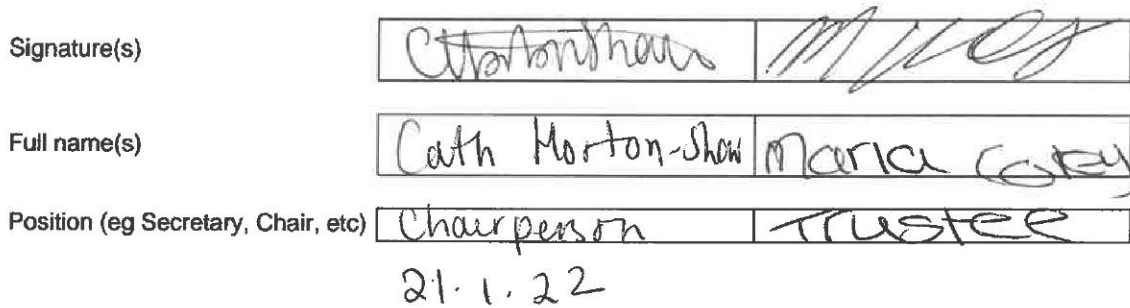 Signature(s)
Full name(s) Cath Morton-Shaw Maria
Position (eg Secretary, Chair, etc) Chairperson Trustee
21.1.22